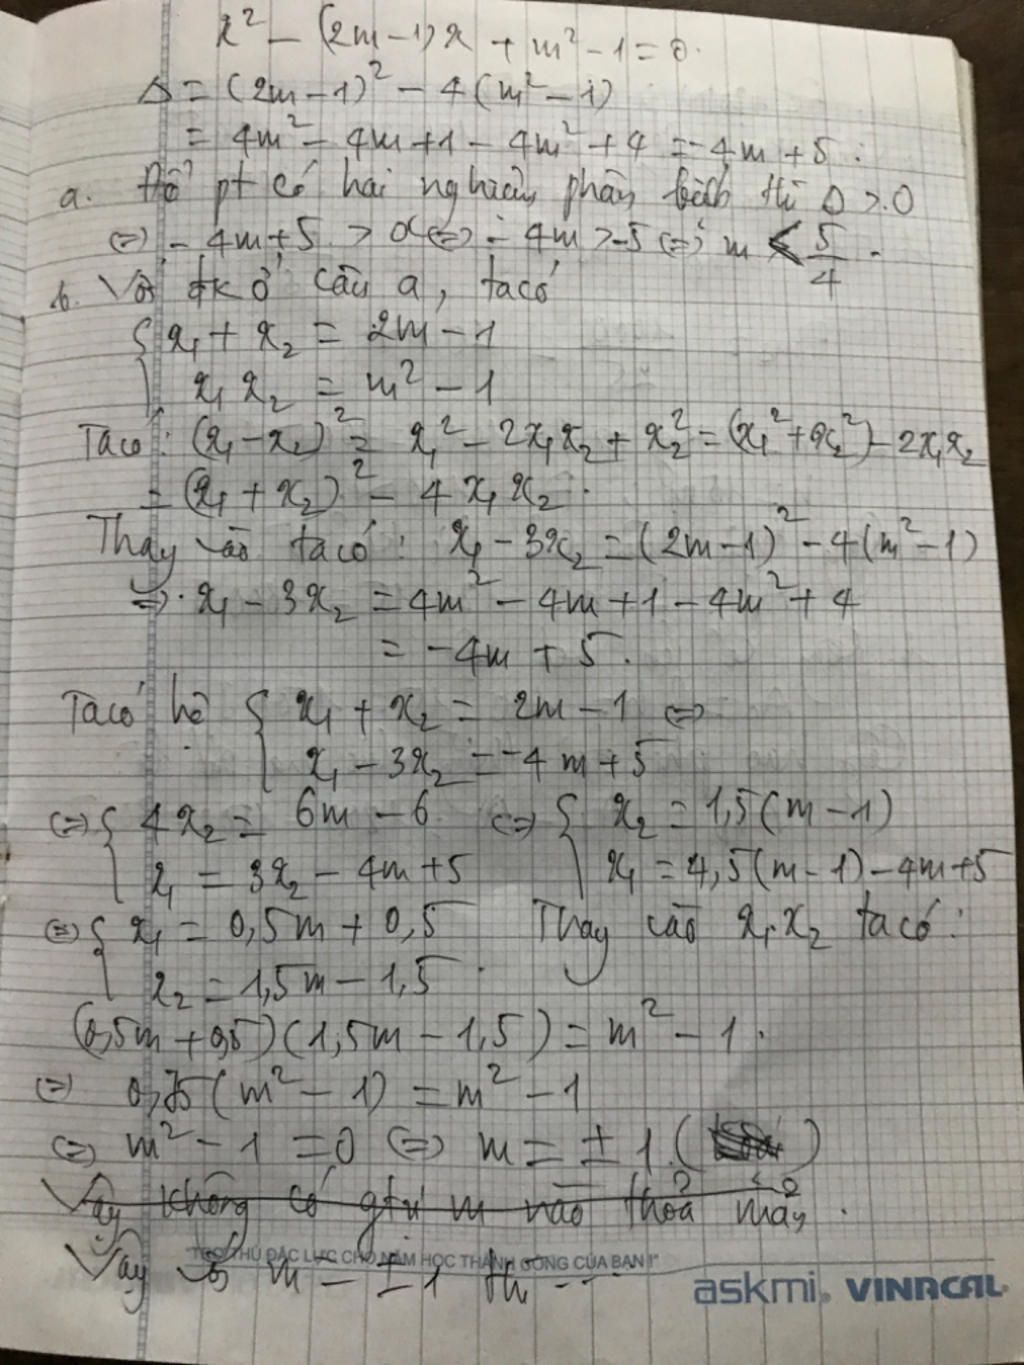 x² - (2m-1)x + m² - 1 = 0.
Δ = (2m-1)² - 4(m²-1)
= 4m² - 4m + 1 - 4m² + 4 = -4m + 5.
a. Để pt có hai nghiệm phân biệt thì Δ > 0
⇔ -4m + 5 > 0 ⇔ -4m > -5 ⇔ m < 5/4.
b. Với đk ở câu a, ta có
{ x₁ + x₂ = 2m - 1
x₁x₂ = m² - 1
Ta có: (x₁ - x₂)² = x₁² - 2x₁x₂ + x₂² = (x₁² + x₂²) - 2x₁x₂
= (x₁ + x₂)² - 4x₁x₂.
Thay vào ta có: x₁ - 3x₂ = (2m-1)² - 4(m²-1)
⇒ x₁ - 3x₂ = 4m² - 4m + 1 - 4m² + 4
= -4m + 5.
Ta có hệ { x₁ + x₂ = 2m - 1 ⇔
x₁ - 3x₂ = -4m + 5
⇔ { 4x₂ = 6m - 6 ⇔ { x₂ = 1,5(m-1)
x₁ = 3x₂ - 4m + 5 x₁ = 4,5(m-1) - 4m + 5
⇔ { x₁ = 0,5m + 0,5 Thay vào x₁.x₂ ta có:
x₂ = 1,5m - 1,5.
(0,5m + 0,5)(1,5m - 1,5) = m² - 1.
⇔ 0,75(m² - 1) = m² - 1
⇔ m² - 1 = 0 ⇔ m = ±1 ( )
Vậy không có gtrị m nào thỏa mãn.
"TRỢ THỦ ĐẮC LỰC CHO NĂM HỌC THÀNH CÔNG CỦA BẠN !"
Vậy với m = ±1 thì ...
askmi. VINACAL